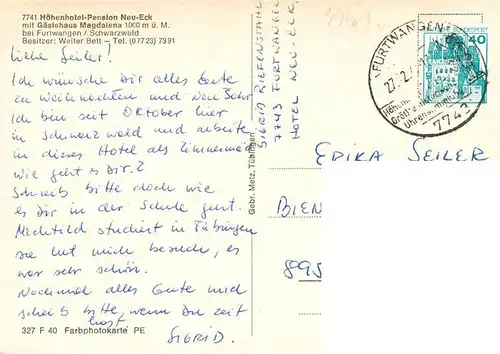 7741 Höhenhotel-Pension Neu-Eck
mit Gästehaus Magdalena 1000 m ü. M.
bei Furtwangen / Schwarzwald
Besitzer: Walter Bett – Tel. (07723) 7391
Liebe Seiler!
Ich wünsche Dir alles Gute
zu Weihnachten und Neu Jahr
Ich bin seit Oktober hier
in Schwarz wald und arbeite
in dieses Hotel als Zimmermä
Wie geht es Dir?
Schreib bitte doch wie
es Dir in der Schule geht.
Mechtild studiert in Tübingen
sie hat mich besucht, es
war sehr schön.
Nochmal alles Gute und
schreib bitte, wenn Du zeit
hast
SIGRID.
327 F 40 Farbphotokarte PE
Gebr. Metz, Tübingen
SIGRID RIEFENSTAHL
7743 FURTWANGEN
HOTEL NEU-ECK
FURTWANGEN
27.2.
7743
40
ERIKA SEILER
BIEN
895